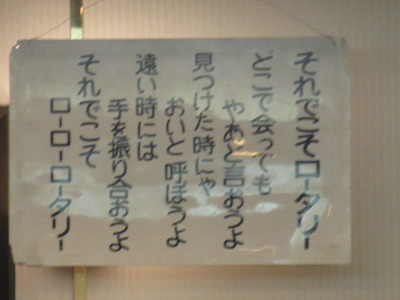 それでこそロータリー
どこで会っても
やあと言おうよ
見つけた時にゃ
おいと呼ぼうよ
遠い時には
手を振り合おうよ
それでこそ
ローローロータリー